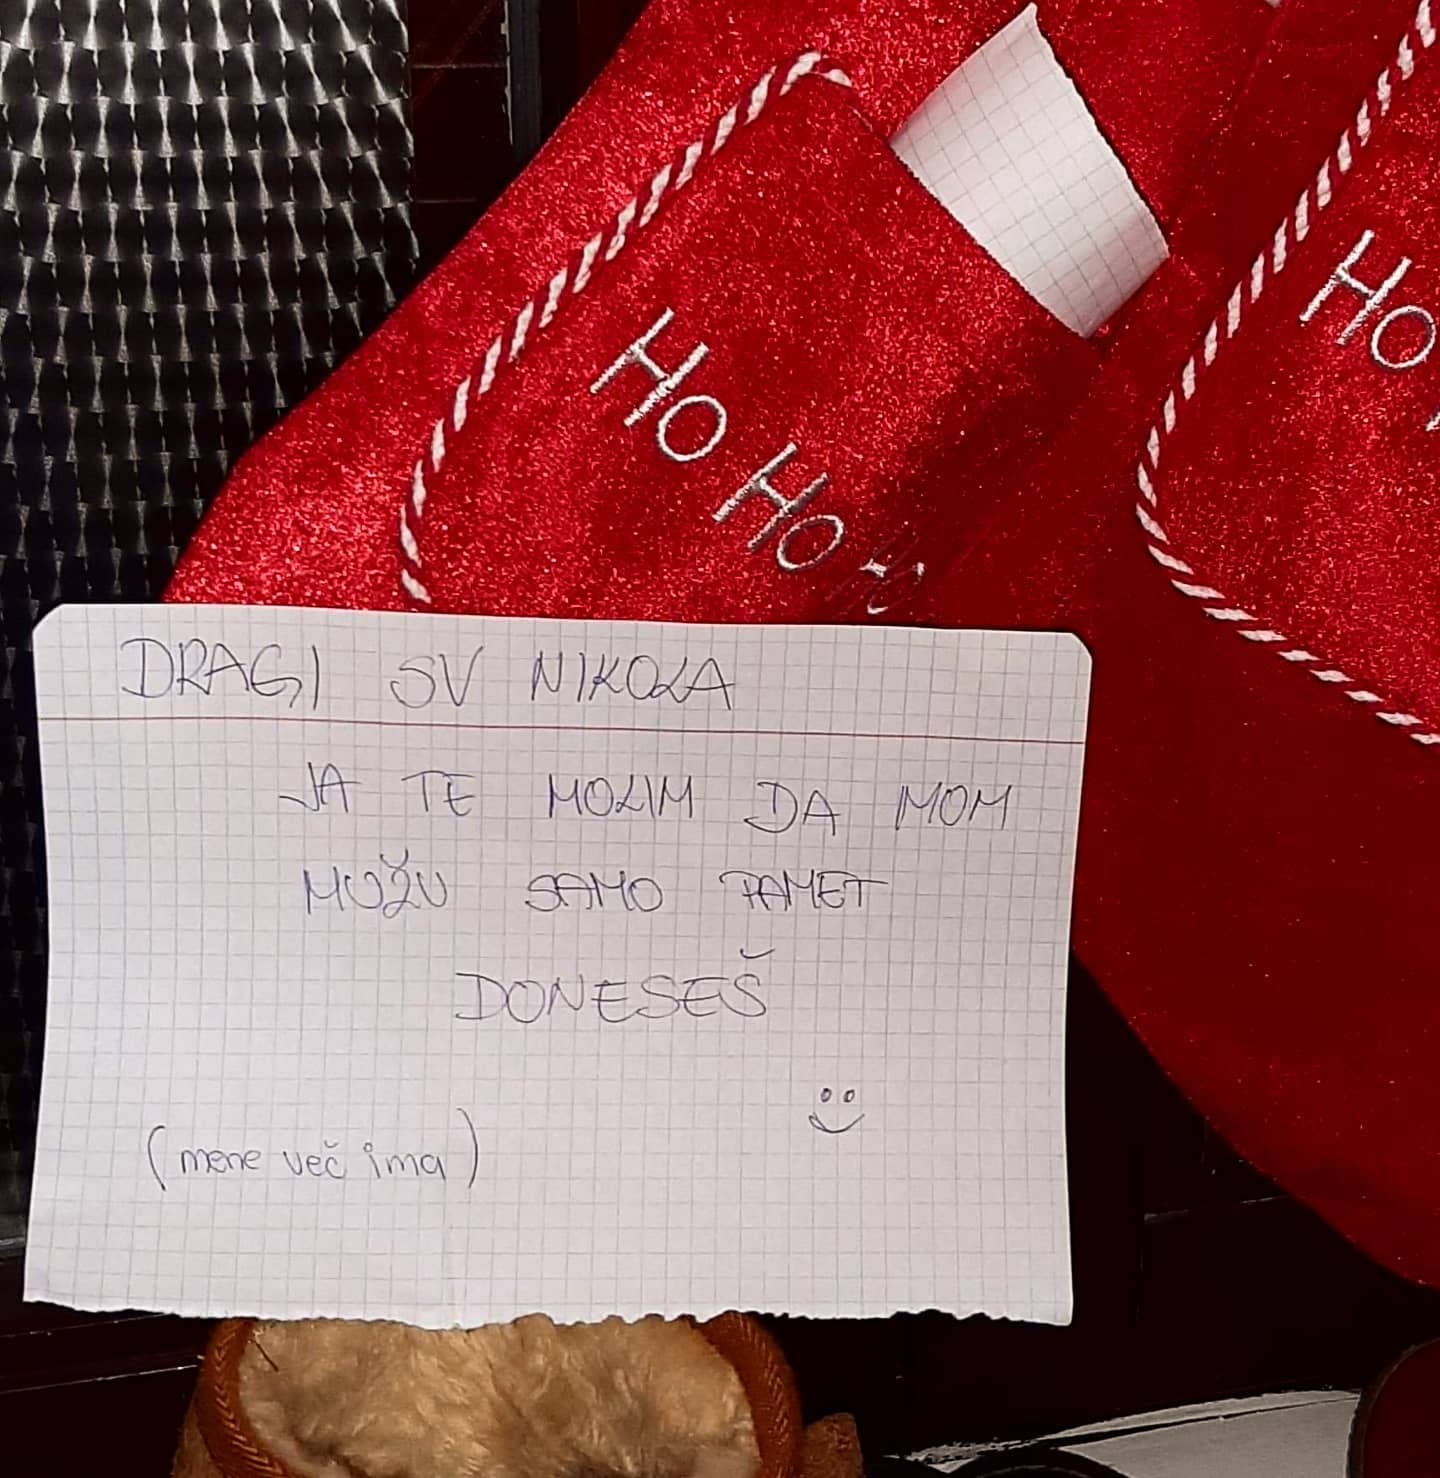 HO HO HO
HO
DRAGI SV NIKOLA
JA TE MOLIM DA MOM
MUŽU SAMO PAMET
DONESEŠ
(mene več ima)